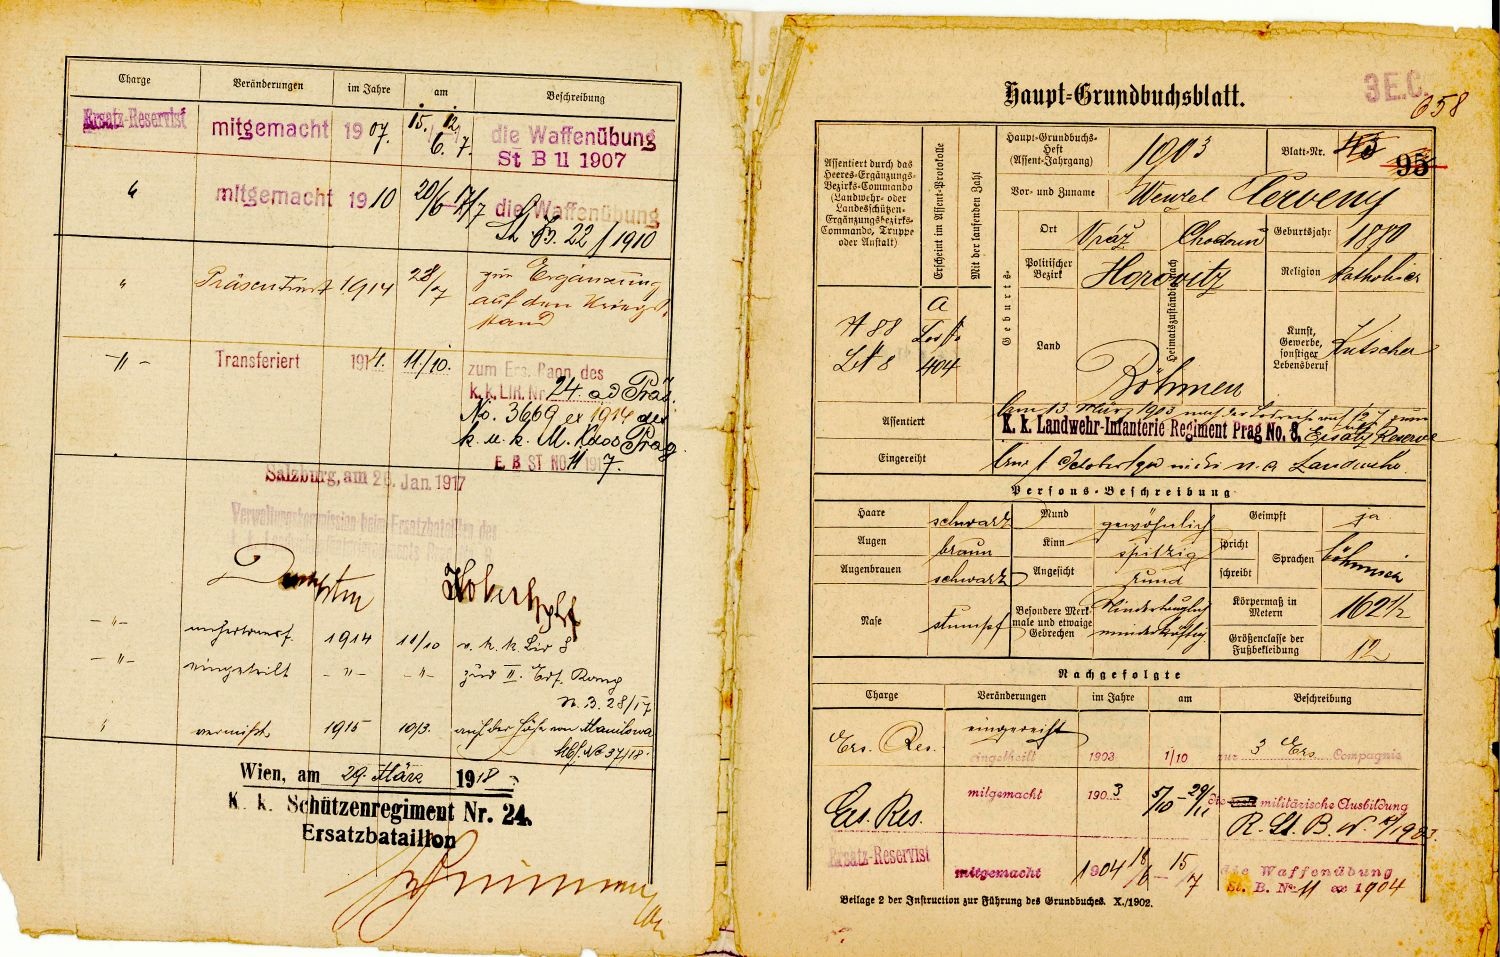 Charge
Veränderungen
im Jahre
am
Beschreibung
Ersatz-Reservist
mitgemacht
1907.
15. 12.
6. 7.
die Waffenübung
St B 11 1907
"
mitgemacht
1910
20/6 17/7
die Waffenübung
St B. 22/1910
"
Präsentiert
1914
28/7
zur Ergänzung
auf den Kriegs-
stand
-"-
Transferiert
1914.
11/10.
zum Ers. Baon. des
k.k. LIR. Nr. 24. ad Präs.
No. 3669 ex 1914 des
k. u. k. M. Kdos Prag
E. B ST NO 11 1917.
Salzburg, am 26. Jan. 1917
Verwaltungskommission beim Ersatzbataillon des
-"-
1914
11/10
v. k. k. Lir 8
-"-
eingeteilt
-"-
-"-
zur II. Ers. Komp
N. B. 28/17
"
vermißt
1915
10/3.
auf der Höhe von Manilowa
No 37/18.
Wien, am 29. März 1918
K. k. Schützenregiment Nr. 24.
Ersatzbataillon
Haupt-Grundbuchsblatt.
3 E.C.
658
Assentiert durch das
Heeres-Ergänzungs-
Bezirks-Commando
(Landwehr- oder
Landesschützen-
Ergänzungsbezirks-
Commando, Truppe
oder Anstalt)
Erscheint im Assent-Protokolle
Mit der laufenden Zahl
Haupt-Grundbuchs-
Heft
(Assent-Jahrgang)
1903
Blatt-Nr.
95
Vor- und Zuname
Wenzel Červený
Geburts-
Ort
Vráž
Heimatszuständig nach
Chodouň
Geburtsjahr
1880
Politischer
Bezirk
Horovitz
Religion
katholisch
Land
Böhmen
Kunst,
Gewerbe,
sonstiger
Lebensberuf
Kutscher
H 88
Lst 8
A
404
Assentiert
am 13. März 1903
K. k. Landwehr-Infanterie Regiment Prag No. 8.
Ersatz Reserve
Eingereiht
am 1 October
Landwehr.
Persons-Beschreibung
Haare
schwarz
Mund
gewöhnlich
Geimpft
ja
Augen
braun
Kinn
spitzig
spricht
schreibt
Sprachen
böhmisch
Augenbrauen
schwarz
Angesicht
rund
Nase
stumpf
Besondere Merk-
male und etwaige
Gebrechen
Mindertauglich
minderkräftig
Körpermaß in
Metern
162 1/2
Größenclasse der
Fußbekleidung
12
Nachgefolgte
Charge
Veränderungen
im Jahre
am
Beschreibung
Ers. Res.
eingereiht
eingetheilt
1903
1/10
zur 3 Ers Compagnie
Ers. Res.
mitgemacht
1903
5/10 - 29/11
die militärische Ausbildung
R. St. B. N. 1903.
Ersatz-Reservist
mitgemacht
1904
18/6 - 15/7
die Waffenübung
St. B. No 11 ex 1904
Beilage 2 der Instruction zur Führung des Grundbuches. X./1902.